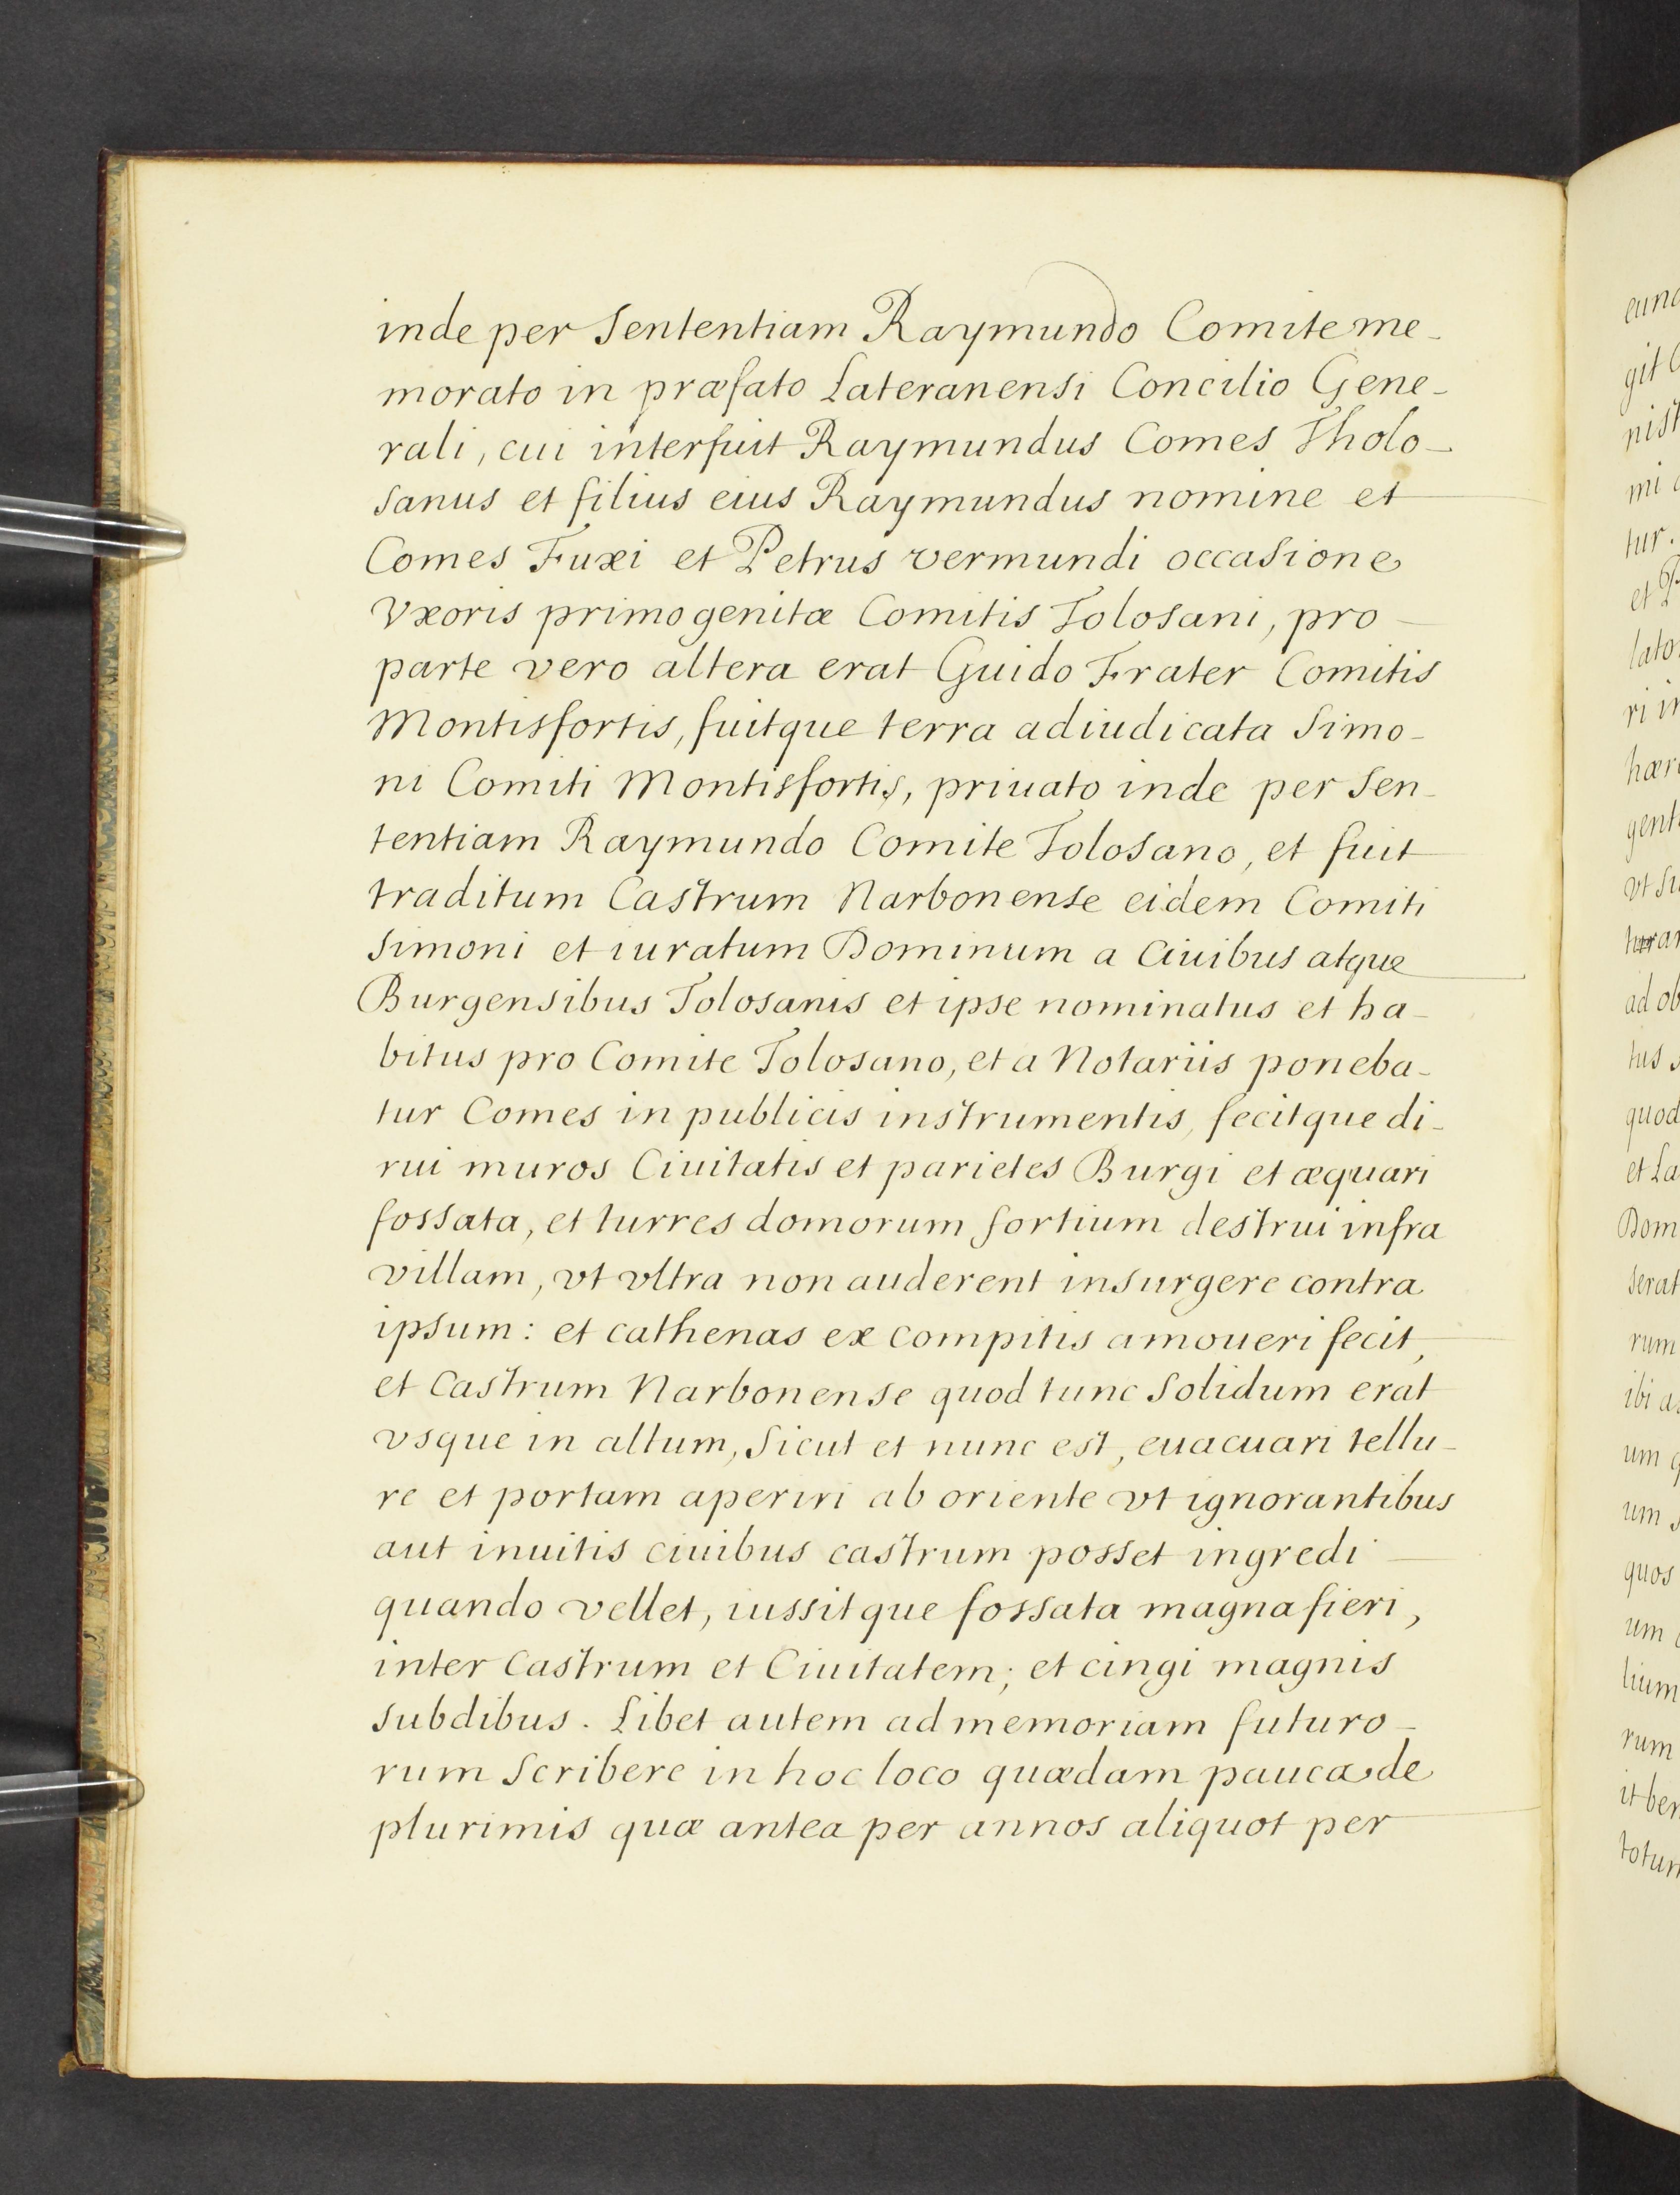 inde per Sententiam Raymundo Comite me-
morato in præfato Lateranensi Concilio Gene-
rali, cui interfuit Raymundus Comes Tholo-
sanus et filius eius Raymundus nomine et
Comes Fuxi et Petrus vermundi occasione
Vxoris primogenitæ Comitis Tolosani, pro
parte vero altera erat Guido Frater Comitis
Montisfortis, fuitque terra adiudicata Simo-
ni Comiti Montisfortis, priuato inde per Sen-
tentiam Raymundo Comite Tolosano, et fuit
traditum Castrum Narbonense eidem Comiti
Simoni et iuratum Dominum a Ciuibus atque
Burgensibus Tolosanis et ipse nominatus et ha-
bitus pro Comite Tolosano, et a Notariis poneba-
tur Comes in publicis instrumentis, fecitque di-
rui muros Ciuitatis et parietes Burgi et æquari
fossata, et turres domorum fortium destrui infra
villam, vt vltra non auderent insurgere contra
ipsum: et cathenas ex compitis amoueri fecit,
et Castrum Narbonense quod tunc Solidum erat
vsque in altum, Sicut et nunc est, euacuari tellu-
re et portam aperiri ab oriente vt ignorantibus
aut inuitis ciuibus castrum posset ingredi
quando vellet, iussitque fossata magna fieri,
inter Castrum et Ciuitatem; et cingi magnis
subdibus. Libet autem ad memoriam futuro-
rum Scribere in hoc loco quædam pauca de
plurimis quæ antea per annos aliquot per